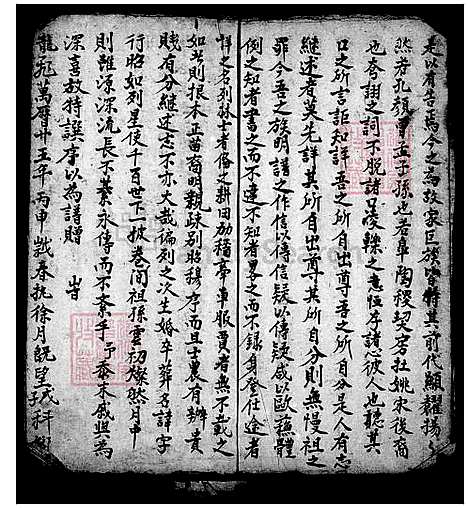 是以有告焉今之為故家巨族皆特其前代顯耀揚〻
然若孔顏曾孟子孫也若皐陶稷契房杜姚宋後裔
也夸詡之詞不脫諸口凌轢之意恒存諸心彼人也聽其
口之所言詎知詳吾之所自出尊吾之所自分是人有志
継述者莫先詳其所自出尊其所自分則無慢祖之
罪今吾之族明譜之作信以傳信疑以傳疑咸以歐蘇體
例之知者書之而不遺不知者畧之而不錄身登仕途者
詳之名列林士者俻之耕田劝穡亭車服賈者無不載之
如此則根本正苗裔明親疎别昭穆序而且士農有辨貴
賤有分継述志不亦大哉编列之次生婚卒葬名諱字
行昭如列星使千百世下披卷间祖孫雲礽燦然月中
則雖源深流長不紊永傳而不紊乎予忝末戚與為
深喜故特譔序以為譜贈 峕
龍飛萬曆廿五年丙申歲春
徐月既望
科